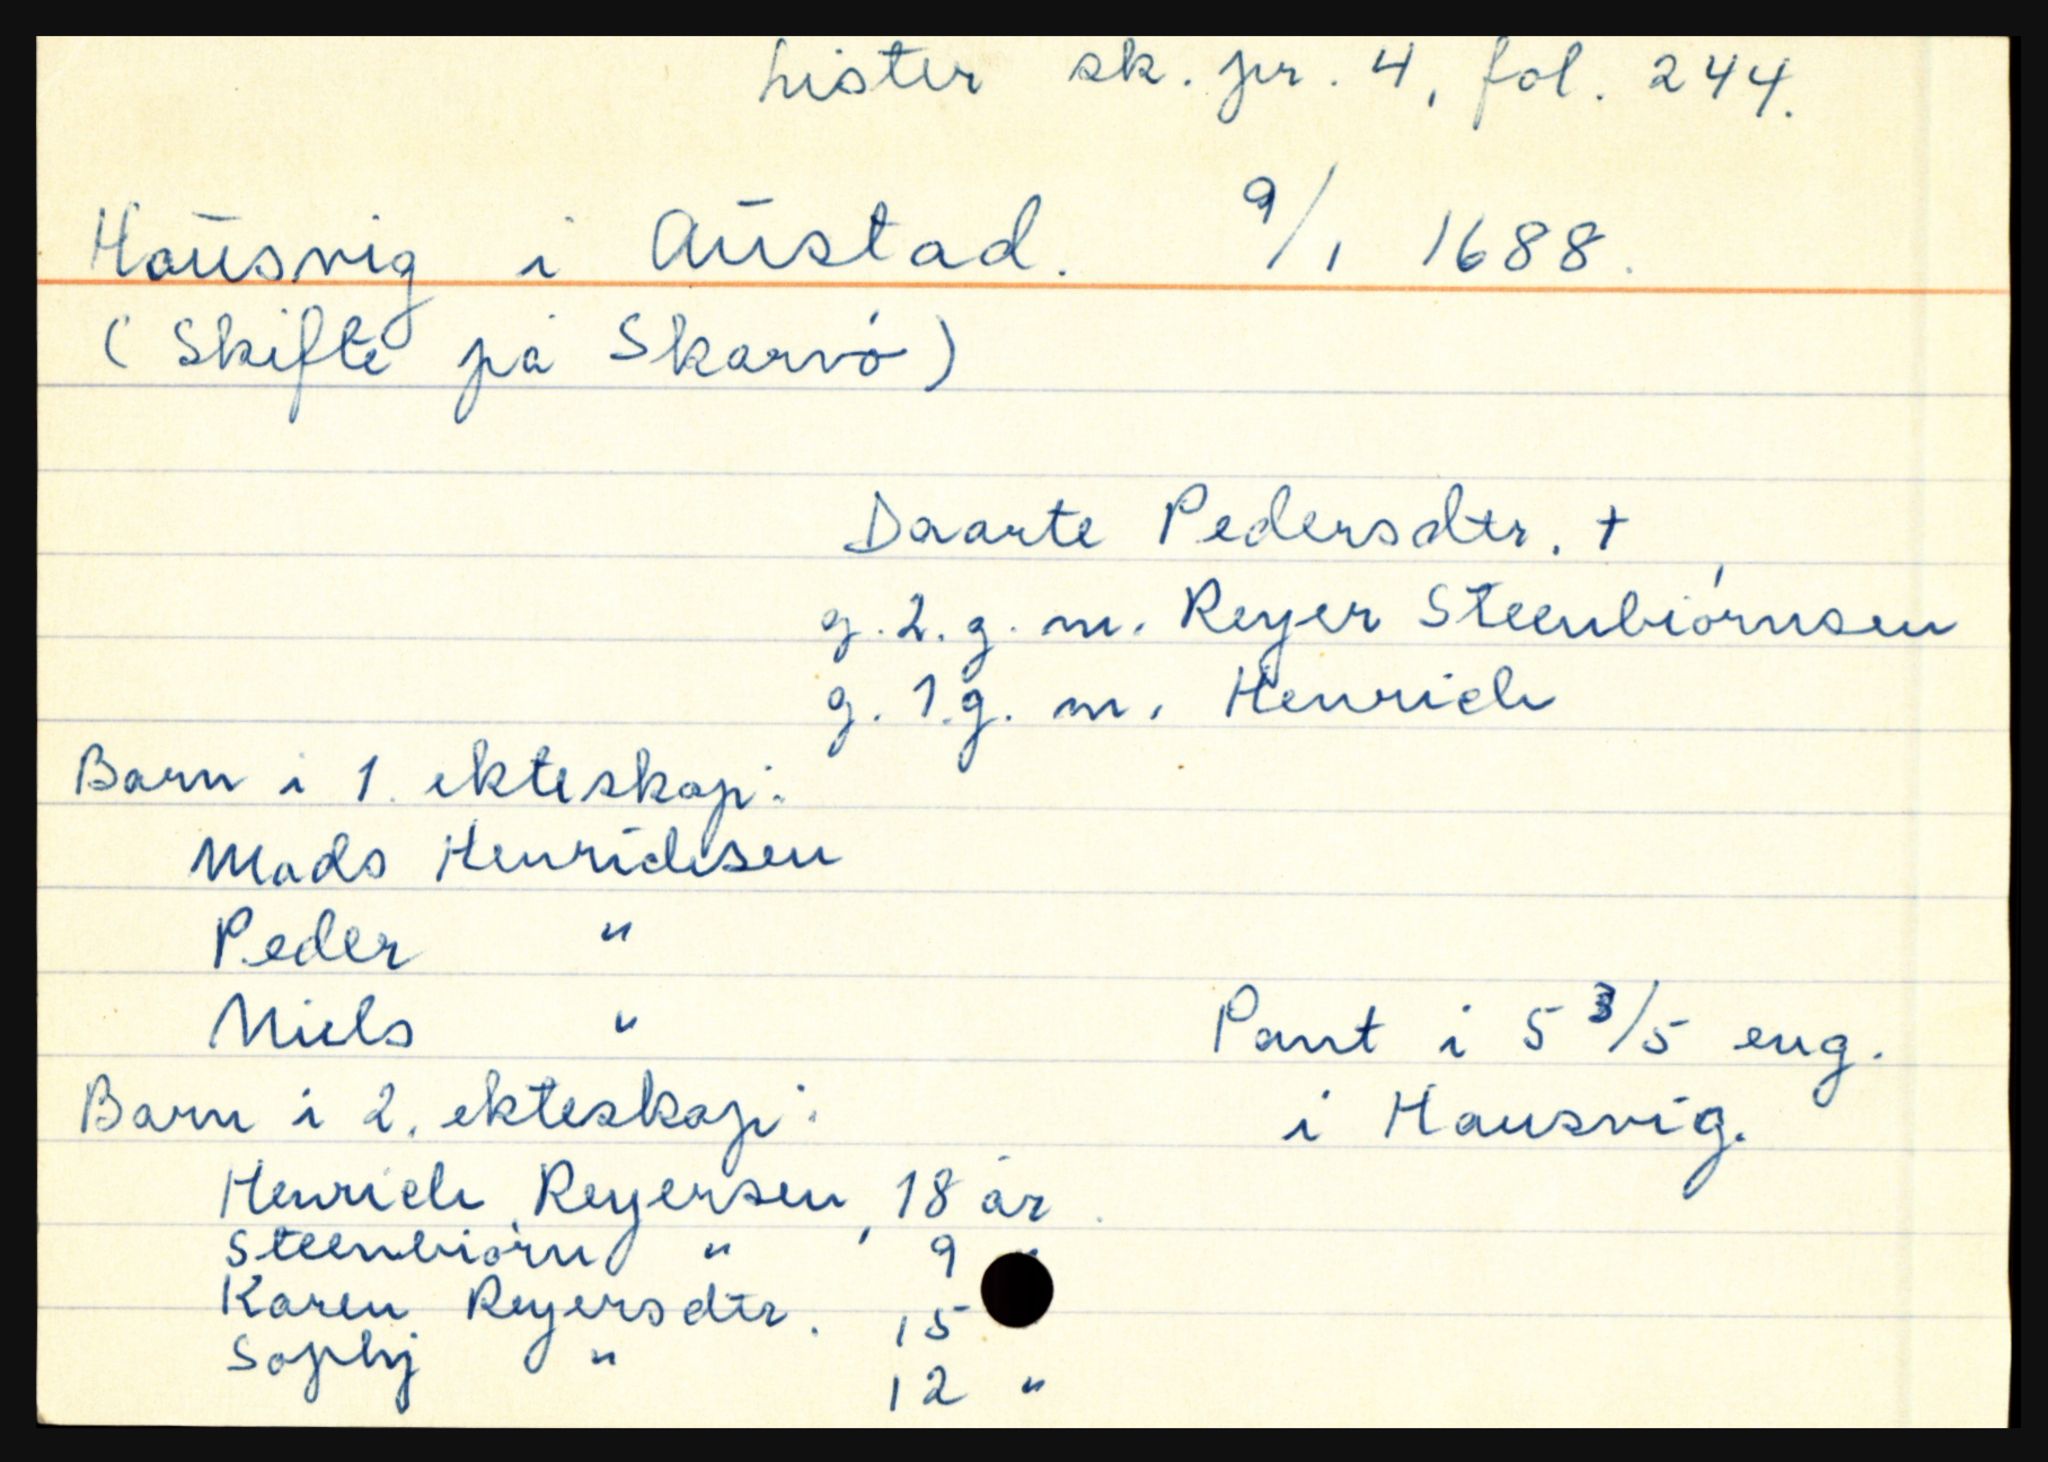 Lister sk. pr. 4, fol. 244.
Hausvig i Austad. 9/1 1688.
(Skifte på Skarvö)
Daarte Pedersdtr. †
g. 2. g. m. Reyer Steenbiörnsen
g. 1. g. m. Henrich
Barn i 1. ekteskap:
Mads Henrichsen
Peder "
Niels "
Pant i 5 3/5 eng.
i Hausvig.
Barn i 2. ekteskap:
Henrich Reyersen, 18 år.
Steenbiörn " 9 "
Karen Reyersdtr. 15
Sophj " 12 "